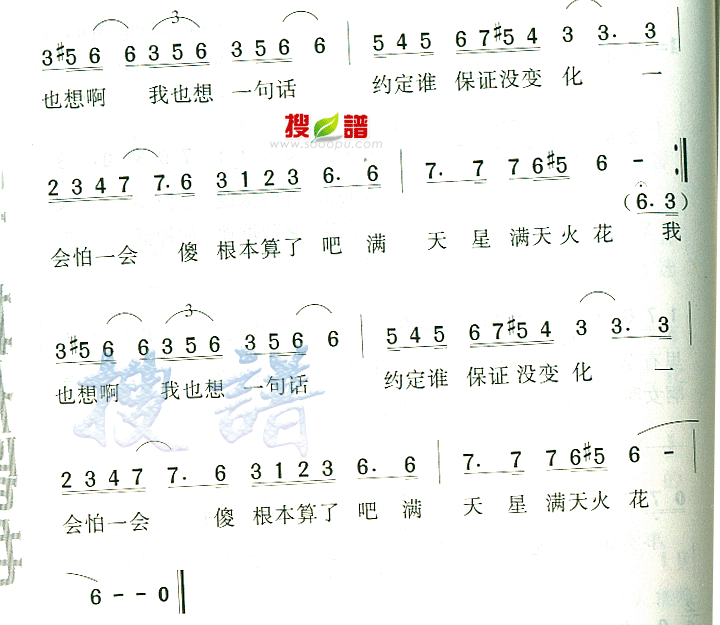 3 #5 6 6 6 3 5 6 3 5 6 6 | 5 4 5 6 7 #5 4 3 3. 3 |
也想啊 我也想 一句话 约定谁 保证没变 化 一
搜 譜
www.sooopu.com
2 3 4 7 7. 6 3 1 2 3 6. 6 | 7. 7 7 6 #5 6 - :||
(6. 3)
会怕一会 傻 根本算了 吧 满 天 星 满天火 花 我
3 #5 6 6 6 3 5 6 3 5 6 6 | 5 4 5 6 7 #5 4 3 3. 3 |
也想啊 我也想 一句话 约定谁 保证没变 化 一
搜 譜
2 3 4 7 7. 6 3 1 2 3 6. 6 | 7. 7 7 6 #5 6 - |
会怕一会 傻 根本算了 吧 满 天 星 满天火 花
6 - - 0 ||